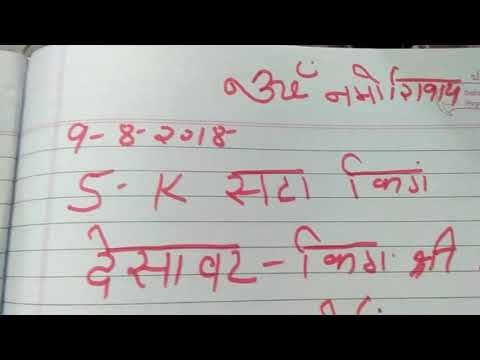 ॐ नमो शिवाय
9-8-2018
S-K सटा किंग
देसावर-किंग श्री